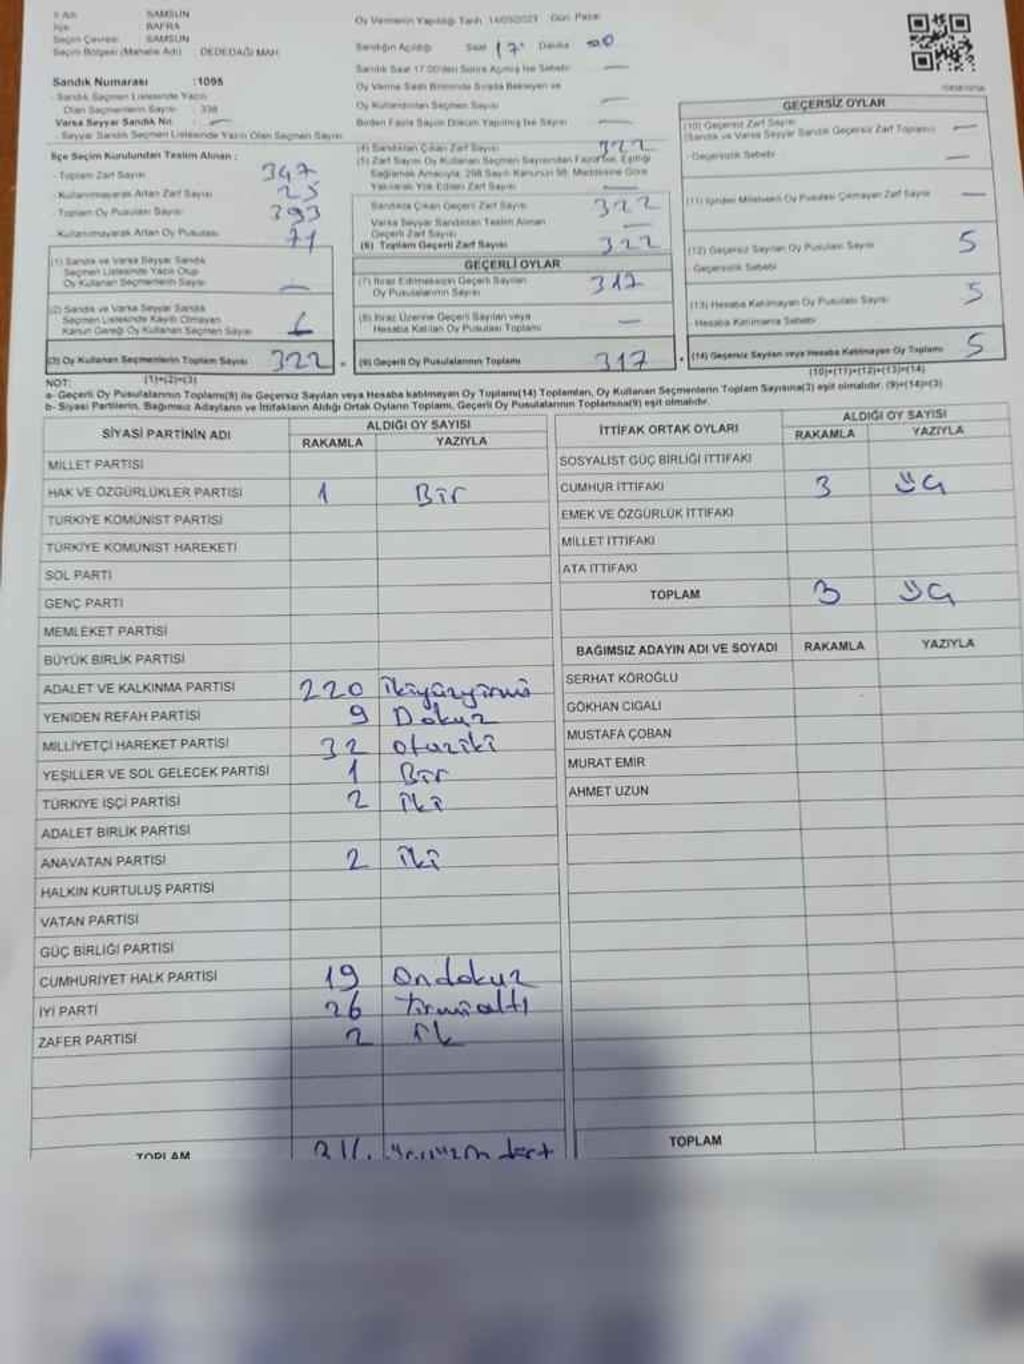 İli Adı : SAMSUN
İlçe : BAFRA
Seçim Çevresi : SAMSUN
Seçim Bölgesi (Mahalle Adı) : DEDEDAĞI MAH.
Sandık Numarası : 1095
Sandık Seçmen Listesinde Yazılı
Olan Seçmenlerin Sayısı : 338
Varsa Seyyar Sandık No. : —
Seyyar Sandık Seçmen Listesinde Yazılı Olan Seçmen Sayısı
İlçe Seçim Kurulundan Teslim Alınan :
- Toplam Zarf Sayısı 347
- Kullanılmayarak Artan Zarf Sayısı 25
- Toplam Oy Pusulası Sayısı 393
- Kullanılmayarak Artan Oy Pusulası 71
(1) Sandık ve Varsa Seyyar Sandık
Seçmen Listesinde Yazılı Olup
Oy Kullanan Seçmenlerin Sayısı —
(2) Sandık ve Varsa Seyyar Sandık
Seçmen Listesinde Kayıtlı Olmayan
Kanun Gereği Oy Kullanan Seçmen Sayısı
(3) Oy Kullanan Seçmenlerin Toplam Sayısı 322
Oy Vermenin Yapıldığı Tarih 14/05/2023 Gün Pazar
Sandığın Açıldığı Saat 17 Dakika 00
Sandık Saat 17:00'den Sonra Açılmış İse Sebebi —
Oy Verme Saati Bitiminde Sırada Bekleyen ve
Oy Kullandırılan Seçmen Sayısı —
Birden Fazla Sayım Döküm Yapılmış İse Sayısı —
(4) Sandıktan Çıkan Zarf Sayısı 322
(5) Zarf Sayısı Oy Kullanan Seçmen Sayısından Fazla İse, Eşitliği
Sağlamak Amacıyla, 298 Sayılı Kanunun 98. Maddesine Göre
Yakılarak Yok Edilen Zarf Sayısı —
Sandıkta Çıkan Geçerli Zarf Sayısı 322
Varsa Seyyar Sandıktan Teslim Alınan
Geçerli Zarf Sayısı —
(6) Toplam Geçerli Zarf Sayısı 322
GEÇERLİ OYLAR
(7) İtiraz Edilmeksizin Geçerli Sayılan
Oy Pusulalarının Sayısı 317
(8) İtiraz Üzerine Geçerli Sayılan veya
Hesaba Katılan Oy Pusulası Toplamı —
(9) Geçerli Oy Pusulalarının Toplamı 317
GEÇERSİZ OYLAR
(10) Geçersiz Zarf Sayısı
(Sandık ve Varsa Seyyar Sandık Geçersiz Zarf Toplamı) —
- Geçersizlik Sebebi —
(11) İçinden Milletvekili Oy Pusulası Çıkmayan Zarf Sayısı —
(12) Geçersiz Sayılan Oy Pusulası Sayısı 5
- Geçersizlik Sebebi
(13) Hesaba Katılmayan Oy Pusulası Sayısı 5
- Hesaba Katılmama Sebebi
(14) Geçersiz Sayılan veya Hesaba Katılmayan Oy Toplamı 5
NOT: (1)+(2)=(3)
(10)+(11)+(12)+(13)=(14)
a- Geçerli Oy Pusulalarının Toplamı(9) ile Geçersiz Sayılan veya Hesaba katılmayan Oy Toplamı(14) Toplamları, Oy Kullanan Seçmenlerin Toplam Sayısına(3) eşit olmalıdır. (9)+(14)=(3)
b- Siyasi Partilerin, Bağımsız Adayların ve İttifakların Aldığı Ortak Oyların Toplamı, Geçerli Oy Pusulalarının Toplamına(9) eşit olmalıdır.
SİYASİ PARTİNİN ADI ALDIĞI OY SAYISI
RAKAMLA YAZIYLA
MİLLET PARTİSİ
HAK VE ÖZGÜRLÜKLER PARTİSİ 1 Bir
TÜRKİYE KOMÜNİST PARTİSİ
TÜRKİYE KOMÜNİST HAREKETİ
SOL PARTİ
GENÇ PARTİ
MEMLEKET PARTİSİ
BÜYÜK BİRLİK PARTİSİ
ADALET VE KALKINMA PARTİSİ 220 ikiyüzyirmi
YENİDEN REFAH PARTİSİ 9 Dokuz
MİLLİYETÇİ HAREKET PARTİSİ 32 otuziki
YEŞİLLER VE SOL GELECEK PARTİSİ 1 Bir
TÜRKİYE İŞÇİ PARTİSİ 2 iki
ADALET BİRLİK PARTİSİ
ANAVATAN PARTİSİ 2 iki
HALKIN KURTULUŞ PARTİSİ
VATAN PARTİSİ
GÜÇ BİRLİĞİ PARTİSİ
CUMHURİYET HALK PARTİSİ 19 Ondokuz
İYİ PARTİ 26 Yirmialtı
ZAFER PARTİSİ 2
TOPLAM
İTTİFAK ORTAK OYLARI ALDIĞI OY SAYISI
RAKAMLA YAZIYLA
SOSYALİST GÜÇ BİRLİĞİ İTTİFAKI
CUMHUR İTTİFAKI 3 üç
EMEK VE ÖZGÜRLÜK İTTİFAKI
MİLLET İTTİFAKI
ATA İTTİFAKI
TOPLAM 3 üç
BAĞIMSIZ ADAYIN ADI VE SOYADI RAKAMLA YAZIYLA
SERHAT KÖROĞLU
GÖKHAN CIGALI
MUSTAFA ÇOBAN
MURAT EMİR
AHMET UZUN
TOPLAM